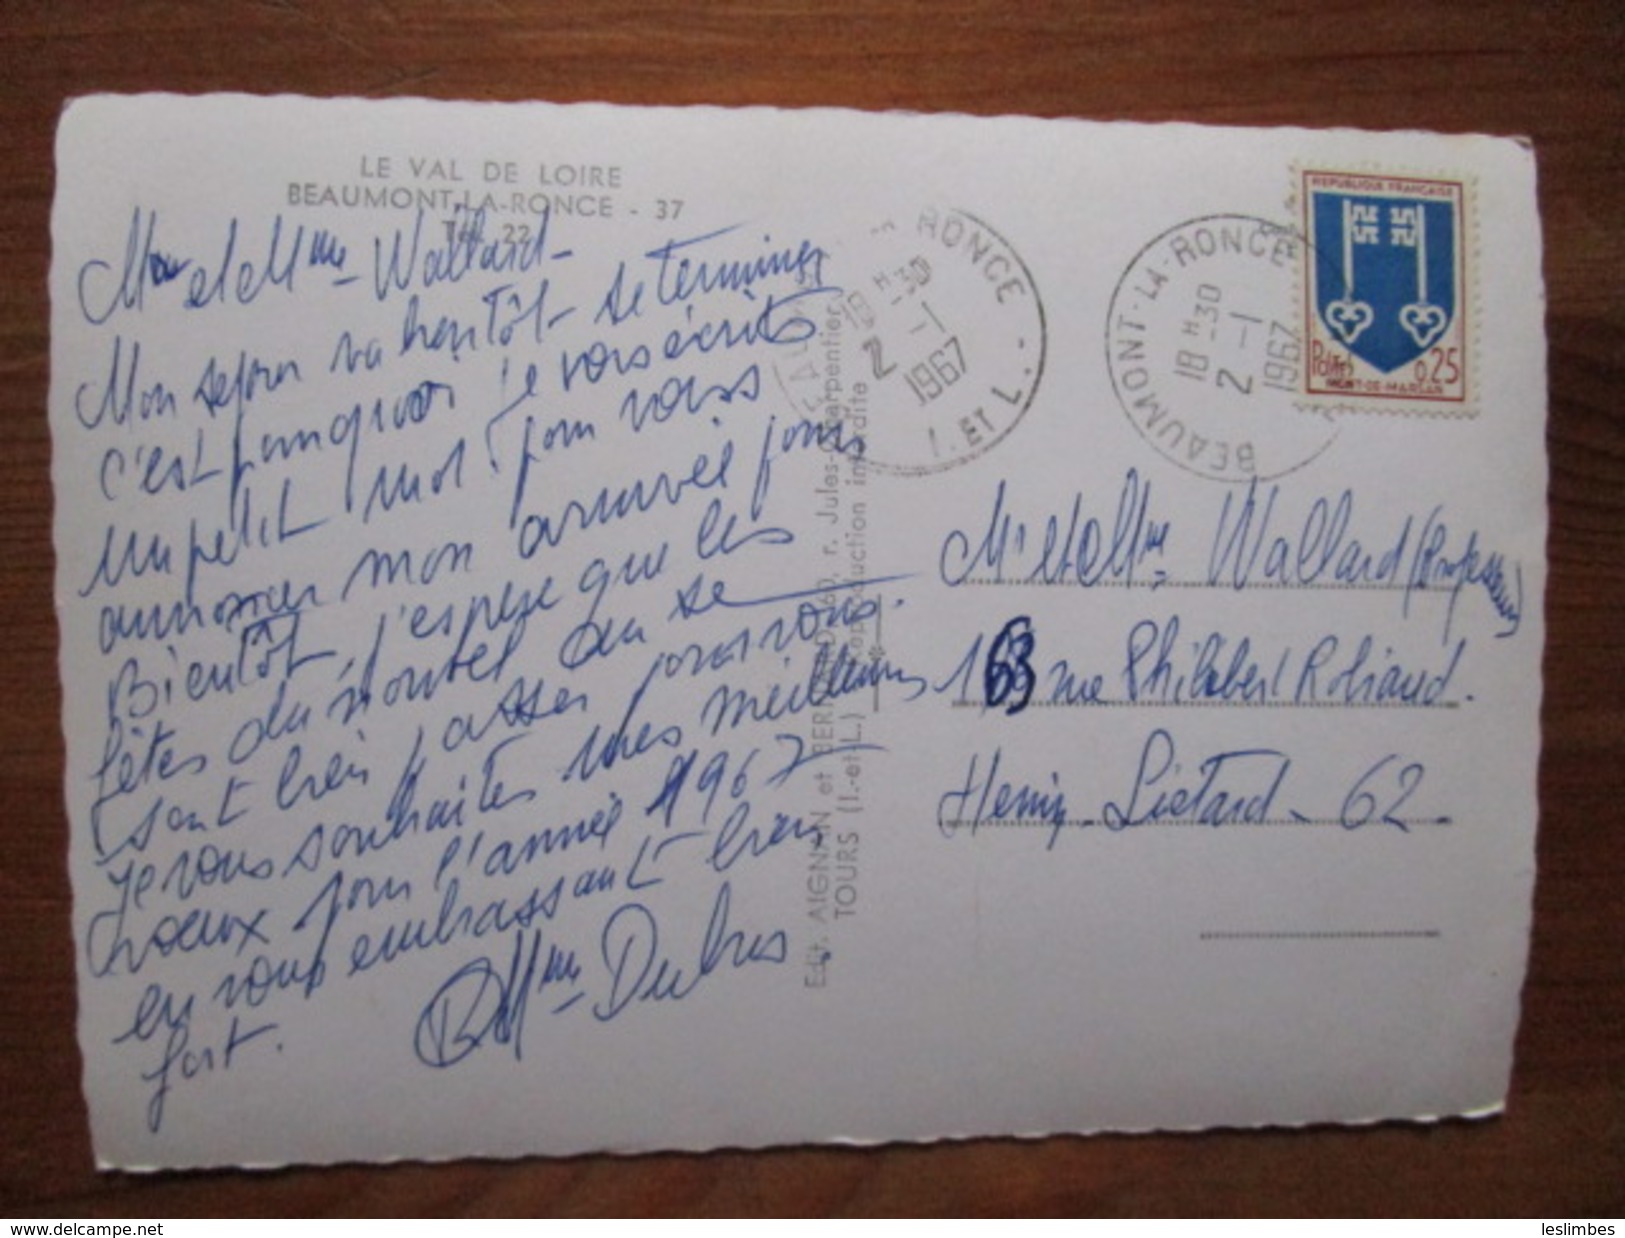 LE VAL DE LOIRE
BEAUMONT-LA-RONCE - 37
22
Mr et Mme Wallard
Mon séjour va bientôt se terminer
c'est pourquoi je vous écrits
un petit mot pour vous
annoncer mon arrivée pour
Bientôt, j'espère que les
fêtes du nouvel an se
sont bien passer pour vous.
Je vous souhaites mes meilleurs
voeux pour l'année 1967
en vous embrassant bien
fort.
Mme Dubus
Edit. AIGNAN et BERNARD, 60, r. Jules-Charpentier
TOURS (I.-et-L.) Reproduction interdite
RONCE
18 H 30
2 -1
1967
I. ET L.
BEAUMONT-LA-RONCE
18 H 30
2 -1
1967
REPUBLIQUE FRANÇAISE
Postes 0,25
MONT-DE-MARSAN
Mr et Mme Wallard (Professeur)
163 rue Philibert Robiaud.
Henin-Liétard - 62 -
delcampe.net
leslimbes